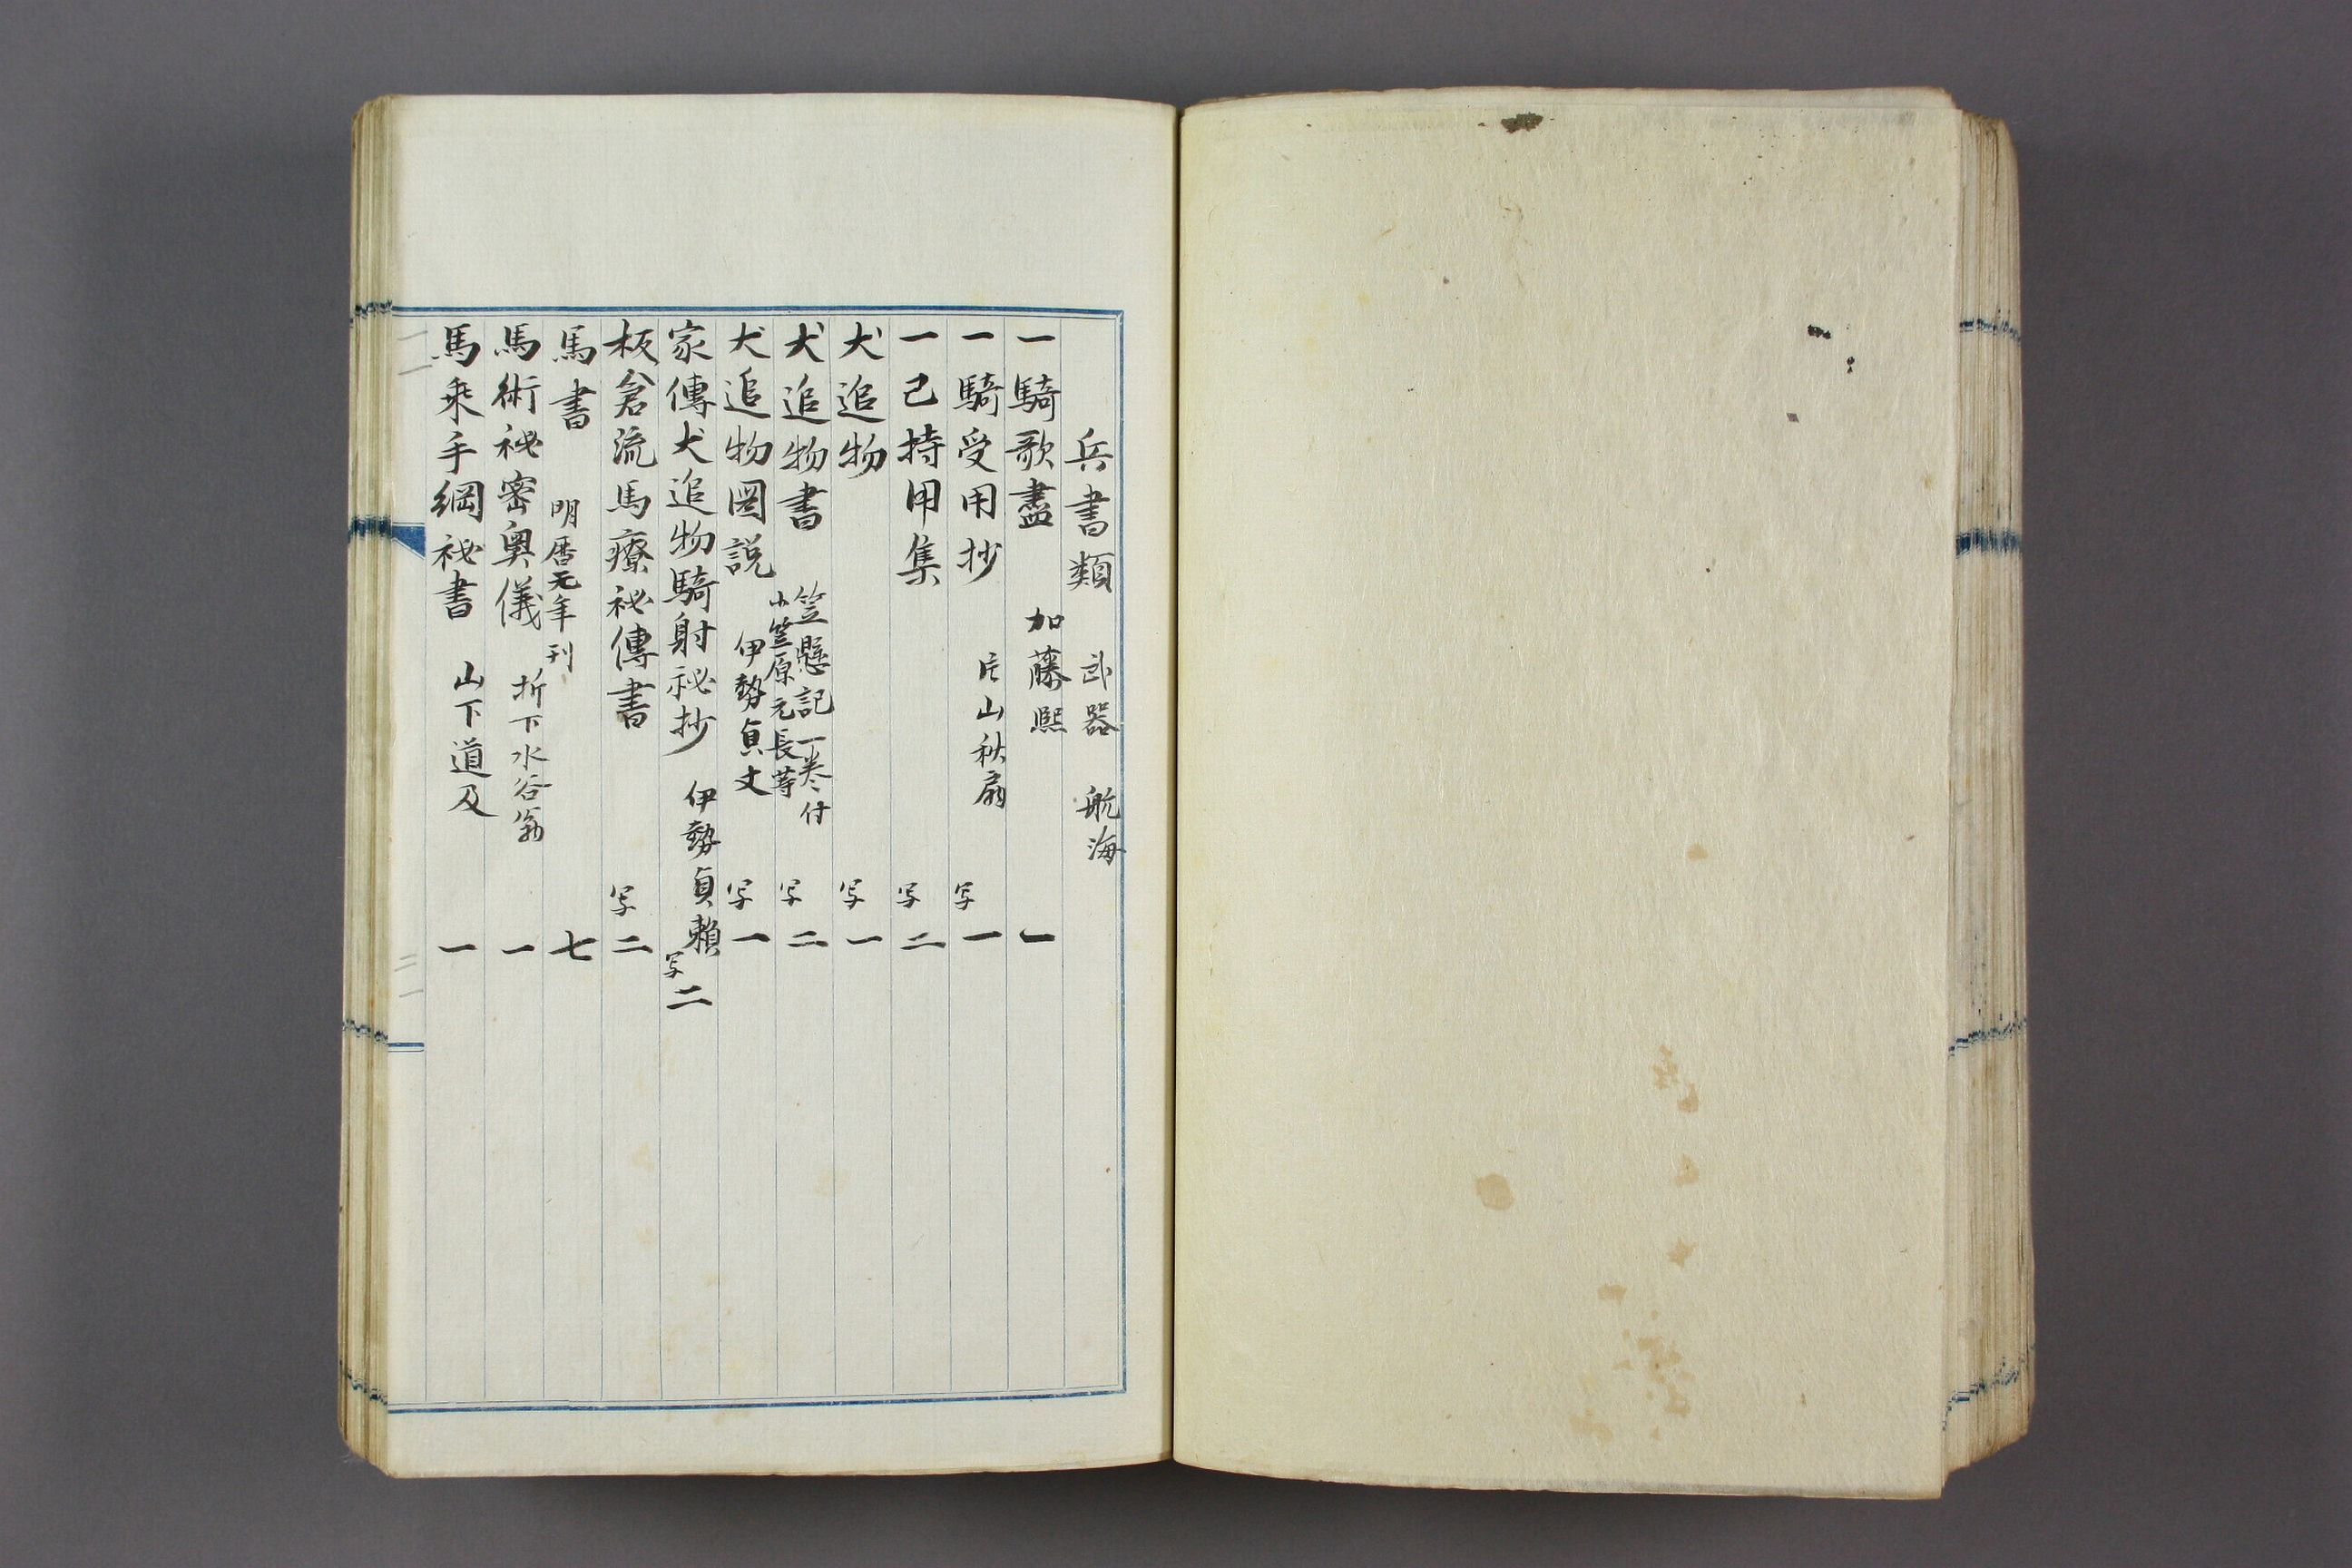 兵書類 武器 航海
一騎歌盡 加藤熙 一
一騎受用抄 片山秋扇 写 一
一己持用集 写 二
犬追物 写 一
犬追物書 笠懸記一巻付 小笠原元長等 写 二
犬追物圖説 伊勢貞丈 写 一
家傳犬追物騎射祕抄 伊勢貞頼 写 二
板倉流馬療祕傳書 写 二
馬書 明暦元年刊 七
馬術祕密奥儀 折下水谷翁 一
馬乘手綱祕書 山下道及 一